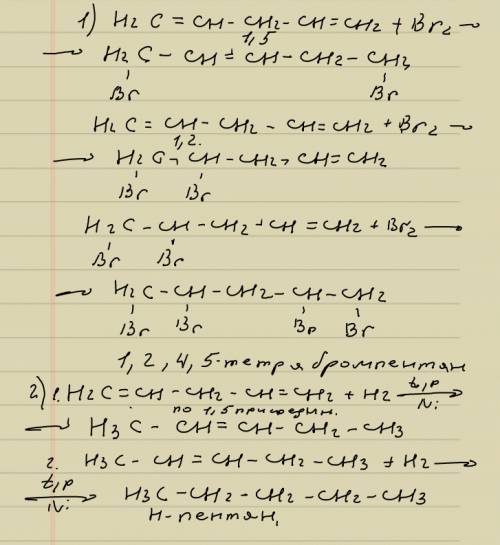 1) H2C=CH-CH2-CH=CH2 + Br2 →
1,5
→ H2C-CH=CH-CH2-CH2
Br Br
H2C=CH-CH2-CH=CH2 + Br2 →
1,2.
→ H2C-CH-CH2-CH=CH2
Br Br
H2C-CH-CH2-CH=CH2 + Br2 →
Br Br
→ H2C-CH-CH2-CH-CH2
Br Br Br Br
1,2,4,5-тетрабромпентан
2) 1. H2C=CH-CH2-CH=CH2 + H2 t,p→
по 1,5 присоедин. Ni
→ H3C-CH=CH-CH2-CH3
2. H3C-CH=CH-CH2-CH3 + H2 →
t,p→ H3C-CH2-CH2-CH2-CH3
Ni
н-пентан,